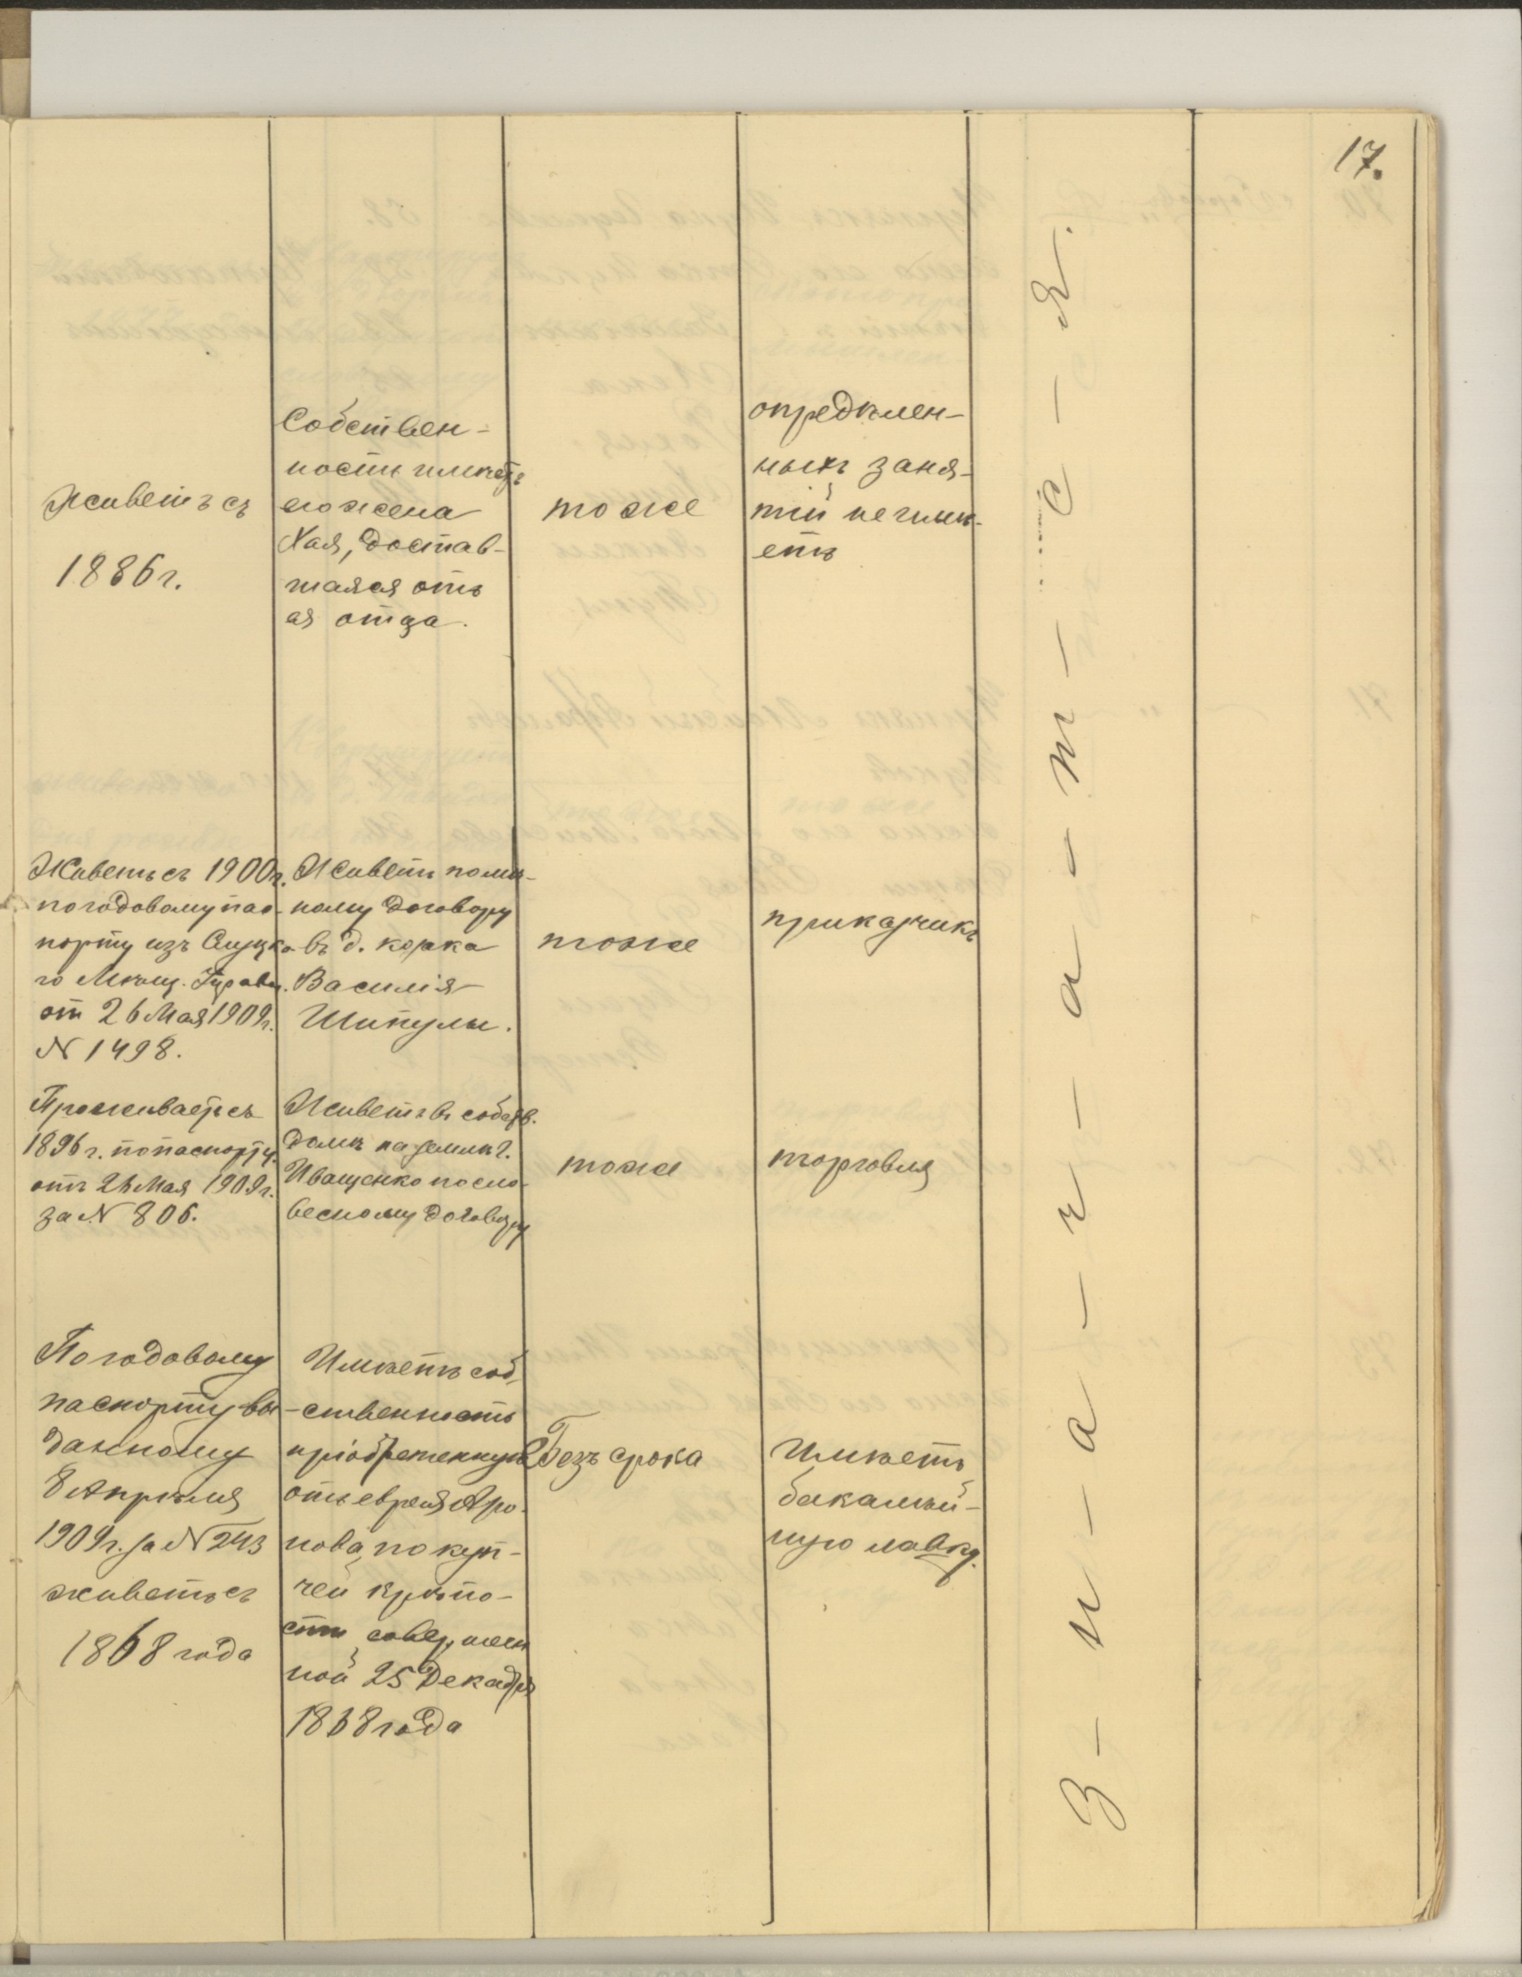 17.
Живетъ съ
1886 г.
Собствен-
ность имѣетъ
его жена
Хая, достав-
шаяся отъ
ея отца.
тоже
опредѣлен-
ныхъ заня-
тій не имѣ-
етъ
Живетъ съ 1900 г.
по годовому пас-
порту изъ Слуцка-
го Мѣщ. Управл.
от 26 Мая 1909 г.
N 1498.
Живетъ по мѣ-
ному договору
въ д. козака
Василія
Шипулы.
тоже
приказчикъ
Проживаетъ съ
1896 г. по паспорту
отъ 26 Мая 1909 г.
за N 806.
Живетъ въ собств.
домѣ на землѣ г.
Иващенко по сло-
весному договору
тоже
торговля
По годовому
паспорту вы-
данному
8 Апрѣля
1909 г. за N 243
живетъ съ
1868 года
Имѣетъ соб-
ственность
пріобретенную
отъ еврея Аро-
нова, по куп-
чей крѣпо-
сти совершен
ной 25 Декабря
1868 года
Безъ срока
Имѣетъ
бакалей-
ную лавку.
З - н - а - ч - а - а - т - с - я.